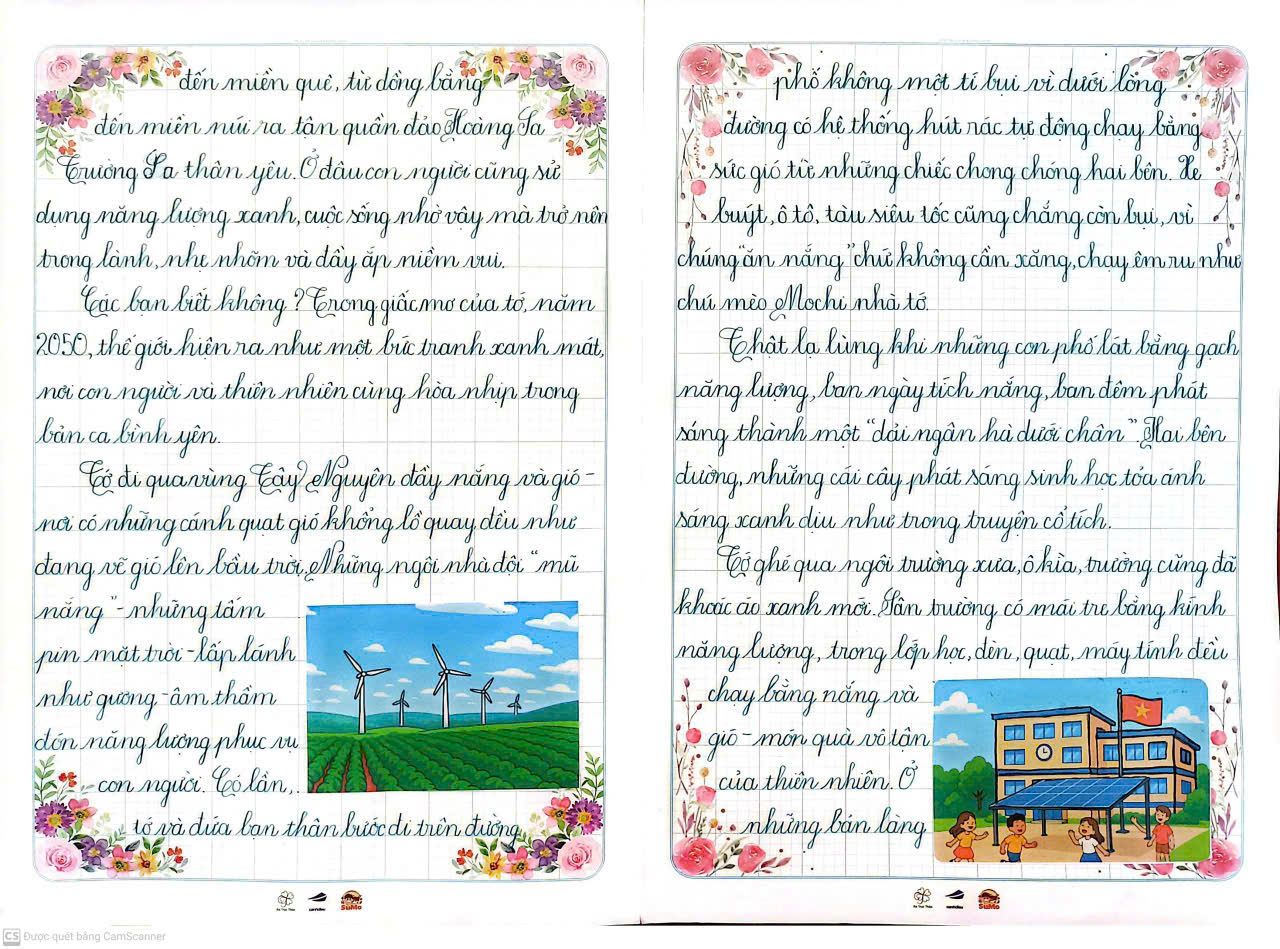 đến miền quê, từ đồng bằng
đến miền núi ra tận quần đảo Hoàng Sa
Trường Sa thân yêu. Ở đâu con người cũng sử
dụng năng lượng xanh, cuộc sống nhờ vậy mà trở nên
trong lành, nhẹ nhõm và đầy ắp niềm vui.
Các bạn biết không ? Trong giấc mơ của tớ, năm
2050, thế giới hiện ra như một bức tranh xanh mát,
nơi con người và thiên nhiên cùng hòa nhịp trong
bản ca bình yên.
Tớ đi qua vùng Tây Nguyên đầy nắng và gió -
nơi có những cánh quạt gió khổng lồ quay đều như
đang vẽ gió lên bầu trời. Những ngôi nhà đội “mũ
nắng” - những tấm
pin mặt trời - lấp lánh
như gương, - âm thầm
đón năng lượng phục vụ
con người. Có lần, .
tớ và đứa bạn thân bước đi trên đường
phố không một tí bụi vì dưới lòng
đường có hệ thống hút rác tự động chạy bằng
sức gió từ những chiếc chong chóng hai bên. Xe
buýt, ô tô, tàu siêu tốc cũng chẳng còn bụi, vì
chúng “ăn nắng” chứ không cần xăng, chạy êm ru như
chú mèo Mochi nhà tớ.
Thật lạ lùng khi những con phố lát bằng gạch
năng lượng, ban ngày tích nắng, ban đêm phát
sáng thành một “dải ngân hà dưới chân”. Hai bên
đường, những cái cây phát sáng sinh học tỏa ánh
sáng xanh dịu như trong truyện cổ tích.
Tớ ghé qua ngôi trường xưa, ô kìa, trường cũng đã
khoác áo xanh mới. Sân trường có mái tre bằng kính
năng lượng, trong lớp học, đèn, quạt, máy tính đều
chạy bằng nắng và
gió - món quà vô tận
của thiên nhiên. Ở
những bản làng
SuMo
SuMo
CS Được quét bằng CamScanner